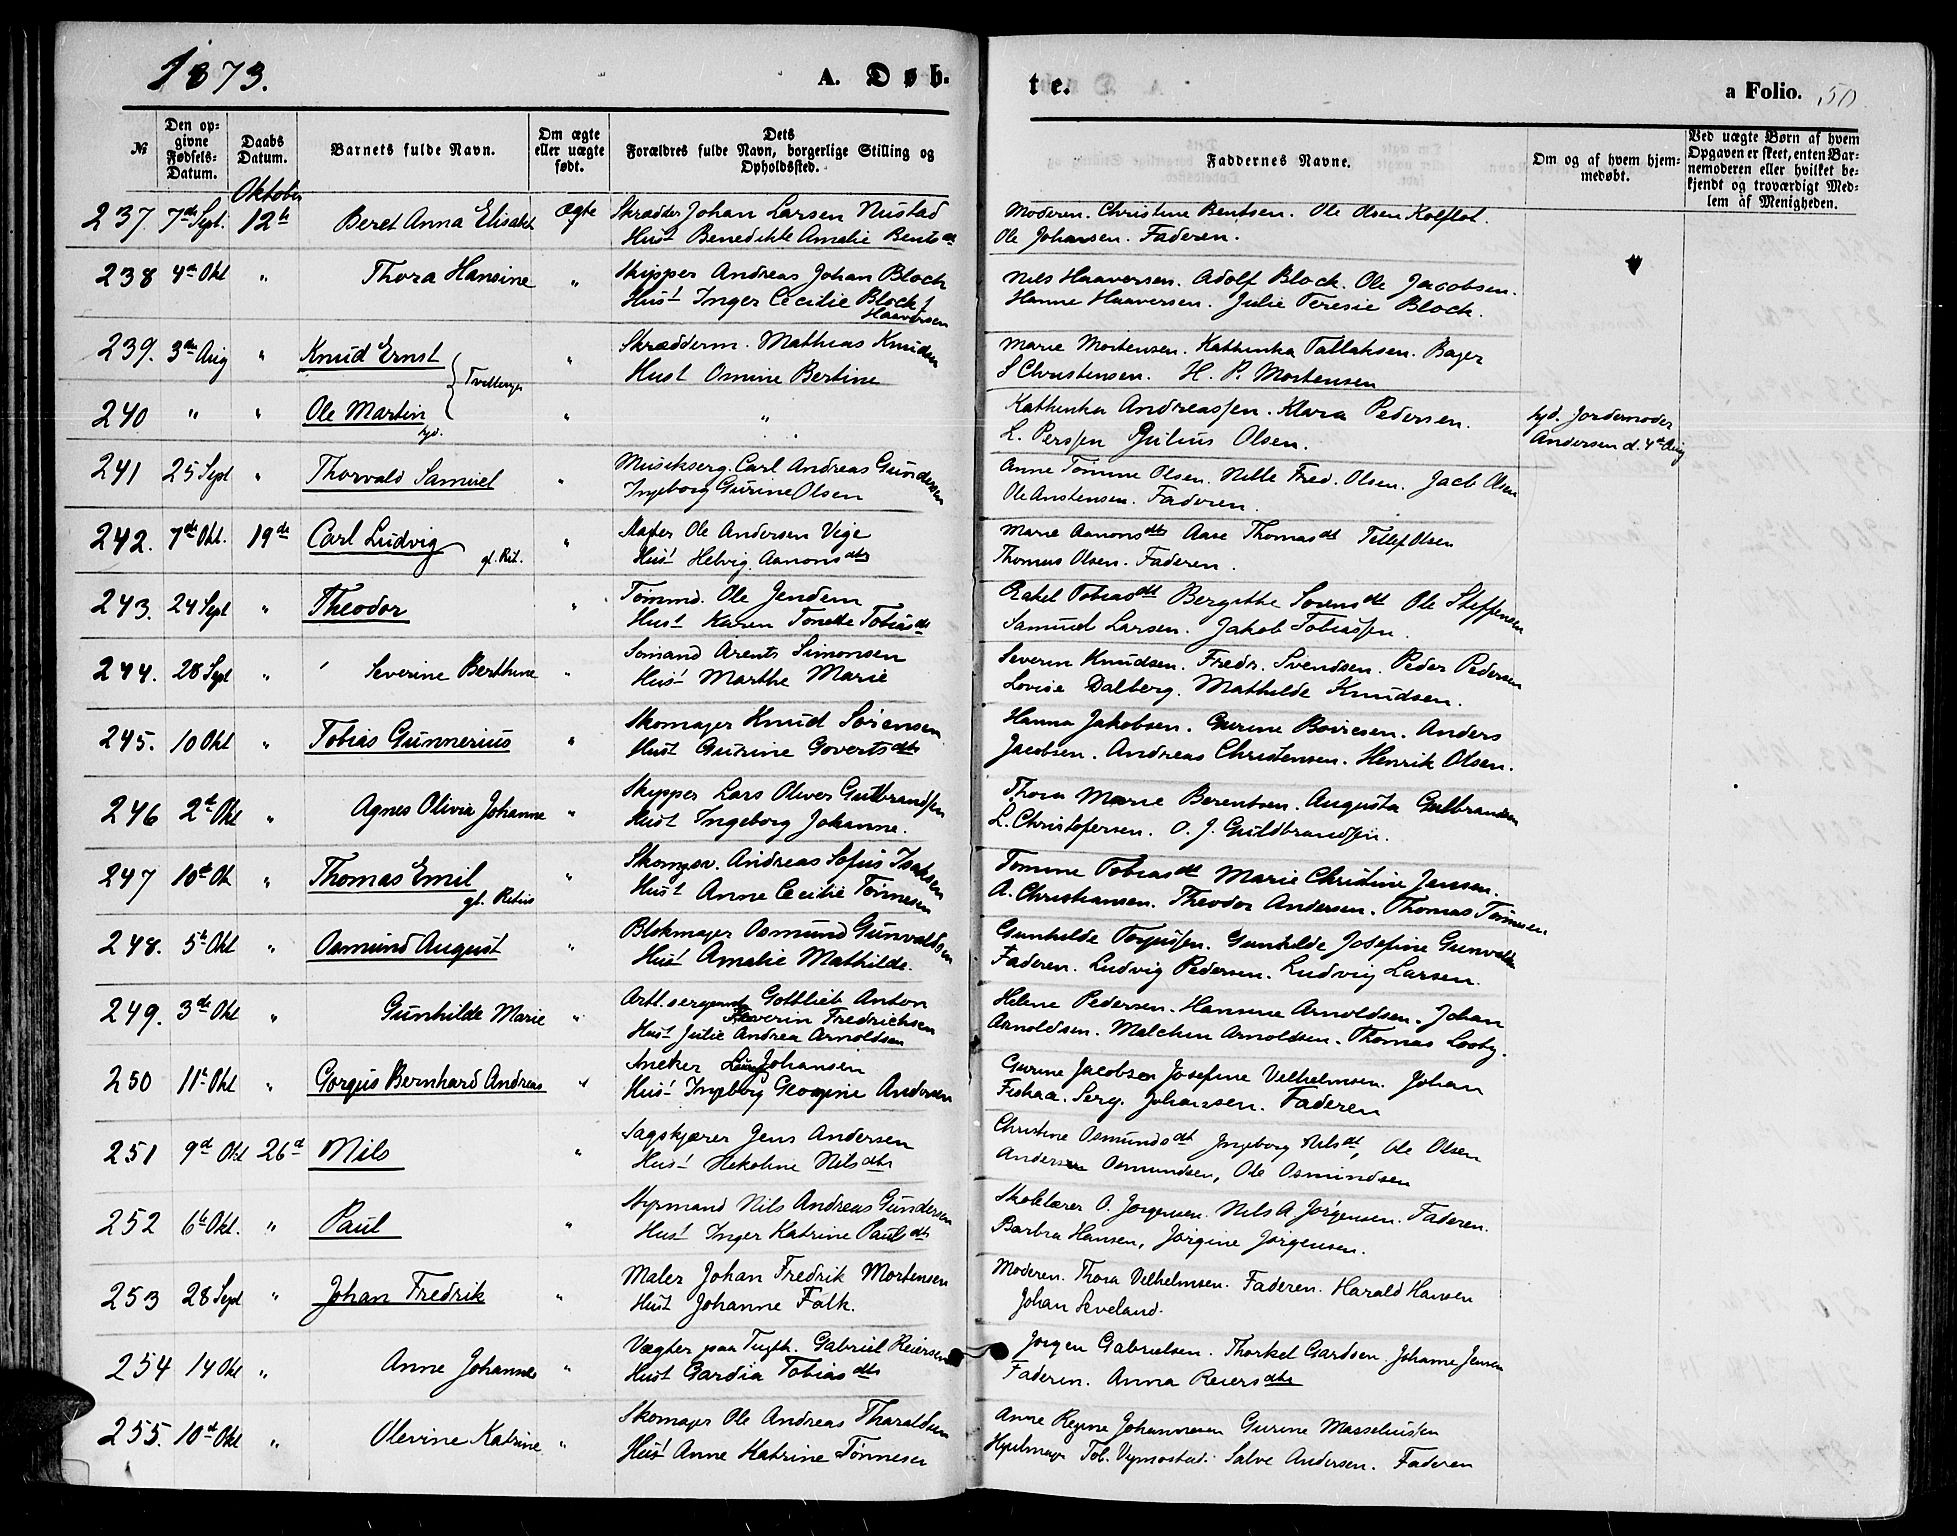 1873.
A. Døb-
te.
a Folio. 50.
№
Den op-
givne
Fødsels-
Datum.
Daabs
Datum.
Barnets fulde Navn.
Om ægte
eller uægte
født.
Dets
Forældres fulde Navn, borgerlige Stilling og
Opholdssted.
Faddernes Navne.
Om og af hvem hjem-
medøbt.
Ved uægte Børn af hvem
Opgaven er skeet, enten Bar-
nemoderen eller hvilket be-
kjendt og troværdigt Med-
lem af Menigheden.
Oktober
237. 7de Sept. 12te Beret Anna Elisabet ægte Skrædder Johan Larsen Nustad
Hust Benedikte Amalie Bentsdt
Moderen. Christine Bentsen. Ole Olsen Kolflot.
Ole Johansen. Faderen.
238 4de Okt " Thora Hansine " Skipper Andreas Johan Bloch
Hust Inger Cecilie Bloch f
Haaversen
Nils Haaversen. Adolf Block. Ole Jacobsen.
Hanne Haaversen. Julie Teresie Bloch.
239. 3de Aug " Knud Ernst " Skrædderm. Mathias Knudsen
Tvillinger
Hust Osmine Bertine
Marie Mortensen. Kathinka Tallaksen. Bager
S Christensen. H. P. Mortensen
240 " " Ole Martin " "
hjd.
Kathinka Andreassen. Klara Pedersen.
L. Perssen Julius Olsen.
hjd. Jordemoder
Andersen d. 4de Aug
241 25 Sept " Thorvald Samuel " Musikserg. Carl Andreas Gundersen
Ingeborg Gurine Olsen
Anne Tomine Olsen. Nille Fred. Olsen. Jacb Olsen
Ole Anstensen. Faderen.
242. 7de Okt. 19de Carl Ludvig " Ole Andersen Vige
Hust Helvig Aanonsdtr
Marie Aanonsdtr Aase Thomasdt Tellef Olsen
Thomas Olsen. Faderen.
243. 24 Sept " Theodor " Tømmd. Ole Jensen
Hust Karen Tonette Tobiasdt
Rakel Tobiasdt Bergithe Sorensdt Ole Steffensen
Samuel Larsen. Jakob Tobiassen.
244. 28 Sept " Severine Berthine " Somand Arents Simonsen
Hust Marthe Marie
Severin Knudsen. Fredr. Svendsen. Peder Pedersen
Lovise Dalberg. Mathilde Knudsen.
245. 10 Okt " Tobias Gunnerius " Skomager Knud Sörensen
Hust Gurine Govertsdtr
Hanna Jakobsen. Gurine Boiresen. Anders
Jacobsen. Andreas Christensen. Henrik Olsen.
246 2de Okt " Agnes Olivia Johanne " Skipper Lars Oliver Gulbrandsen
Hust Ingeborg Johanne.
Thora Marie Berentsen. Augusta Gulbrandsen
L. Christofersen. O. J. Guldbrandsen.
247 10de Ok " Thomas Emil " Andreas Sofus Isaksen
Hust Anne Cecilie Tönnesen
Tomine Tobiasdt Marie Christine Jensen.
A. Christiansen. Theodor Andersen. Thomas Tönnesen
248. 5te Okt " Osmund August " Blokmager Osmund Gunvaldsen
Hust Amalie Mathilde.
Gunhilde Torgussen. Gunhilde Josefine Gunvalds
Faderen. Ludvig Pedersen. Ludvig Larsen.
249. 3de Okt " Gunhilde Marie " Artl. sergeant Gottlieb Anton
Severin Fredrichsen
Hust Julie Andrea Arnoldsen
Helene Pedersen. Hansine Arnoldsen. Johan
Arnoldsen. Malchin Arnoldsen. Thomas Losby.
250 11te Okt " Gorgus Bernhard Andreas " Sneker Johansen
Hust Ingeborg Georgine Andersen
Gurine Jacobsen Josefine Velhelmsen. Johan
Fiskaa. Serg. Johansen. Faderen
251 9d Okt 26d Nils " Sagskjærer Jens Andersen
Hust Nilsdtr
Christine Osmundsdt Ingeborg Nilsdt, Ole Olsen
Anders Osmundsen, Ole Osmundsen
252 6te Okt. " Paul " Styrmand Nils Andreas Gundersen
Hust Inger Katrine Paulsdt
Skolelærer O. Jorgensen. Nils A. Jörgensen. Faderen.
Barbra Hansen, Jörgine Jörgensen.
253 28 Sept " Johan Fredrik " Maler Johan Fredrik Mortensen
Hust Johanne Falk.
Moderen. Thora Velhelmsen. Faderen. Harald Hansen
Johan Seveland.
254 14 Okt " Anne Johanne " Vægter paa Tugth. Gabriel Reiersen
Hust Gardia Tobiasdtr
Jorgen Gabrielsen. Thorkel Gardsen. Johanne Jensen
Faderen. Anna Reiersdtr
255. 10de Okt " Olevine Katrine " Skomager Ole Andreas Tharaldsen
Hust Anne Katrine Tönnesen
Anne Regine Johannesen Gurine
Tob. Salve Andersen. Faderen